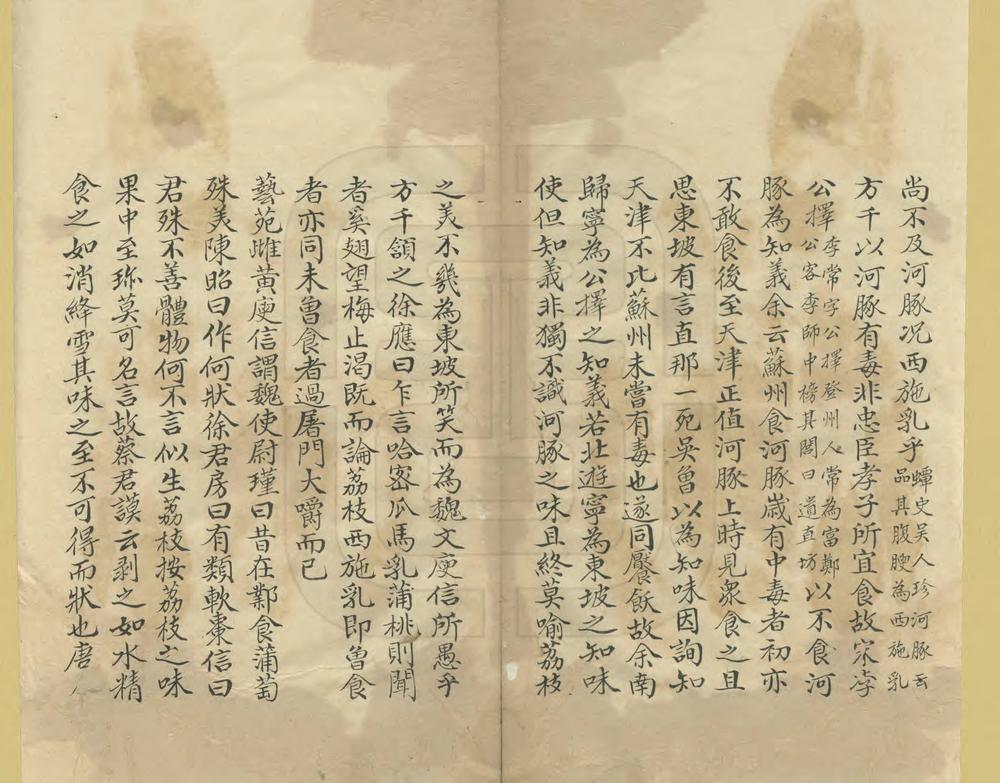 尚不及河豚况西施乳乎蟫史吴人珍河豚云品其腹腴為西施乳
方千以河豚有毒非忠臣孝子所宜食故宋李
公擇李常字公擇登州人常為富鄭公客李師中榜其閭曰道直坊以不食河
豚為知義余云蘇州食河豚嵗有中毒者初亦
不敢食後至天津正值河豚上時見衆食之且
思東坡有言直那一死吳曾以為知味因詢知
天津不比蘇州未嘗有毒也遂同饜飫故余南
歸寧為公擇之知義若北遊寧為東坡之知味
使但知義非獨不識河豚之味且終莫喻荔枝
之美不幾為東坡所笑而為魏文庾信所愚乎
方千頷之徐應曰乍言哈宻瓜馬乳蒲桃則聞
者奚翅望梅止渴既而論荔枝西施乳即曽食
者亦同未曽食者過屠門大嚼而已
藝苑雌黃庾信謂魏使尉瑾曰昔在鄴食蒲萄
殊美陳昭曰作何狀徐君房曰有類軟棗信曰
君殊不善體物何不言似生荔枝按荔枝之味
果中至珎莫可名言故蔡君謨云剥之如水精
食之如消絳雪其味之至不可得而狀也唐